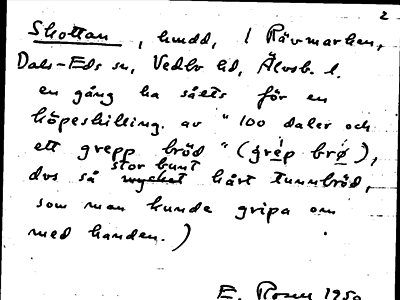 2
Skottan, hmdd, i Rävmarken,
Dals-Eds sn, Vedbo hd, Älvsb. l.
en gång ha sålts för en
köpeskilling av "100 daler och
ett grepp bröd" (grép brø̀),
stor bunt
dvs så mycket hårt tunnbröd,
som man kunde gripa om
med handen.)
E. Rosen 1950